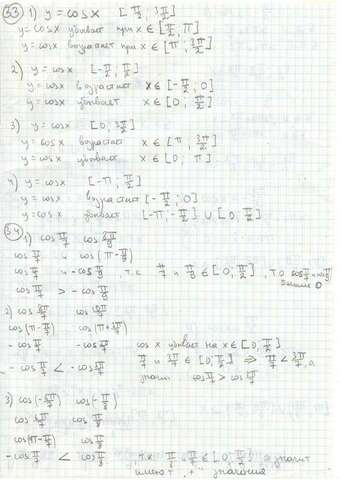 33 1) y = cos x [π/2 ; 3π/2]
y = cos x убывает при x ∈ [π/2, π]
y = cos x возрастает при x ∈ [π ; 3π/2]
2) y = cos x [-π/2 ; π/2]
y = cos x возрастает x ∈ [-π/2 ; 0]
y = cos x убывает x ∈ [0 ; π/2]
3) y = cos x [0 ; 3π/2]
y = cos x возрастает x ∈ [π , 3π/2]
y = cos x убывает x ∈ [0 ; π]
4) y = cos x [-π ; π/2]
y = cos x возрастает [-π/2 ; 0]
y = cos x убывает [-π ; -π/2] ∪ [0, π/2]
34
1) cos π/7 cos
cos π/7 и cos(π - π/8)
cos π/7 и -cos π/8 , т.к. π/7 и π/8 ∈ [0 ; π/2] , то cos π/7 и
cos π/7 > -cos π/8
2)
-cos π/7 cos x убывает на x ∈ [0, π/2]
π/7 и 3π/7 ∈ [0, π/2] ⇒ π/7 < 3π/7, а
значит cos π/7 > cos 3π/7
3) cos(-π/8)
cos π/8
cos(π - π/7) cos π/8
-cos π/7 < cos π/8 , т.к. π/7 ∈ [0, π/2] а значит
имеют "+" значения